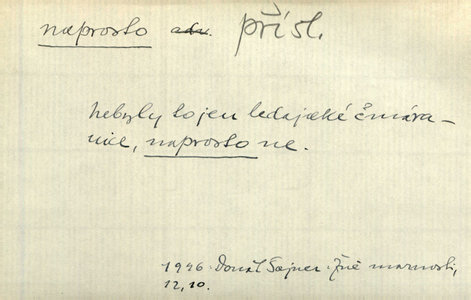 naprosto adv. přísl.
nebyly to jen ledajaké čmára-
nice, naprosto ne.
1946. Donát Šajner. Žně marnosti,
12, 10.